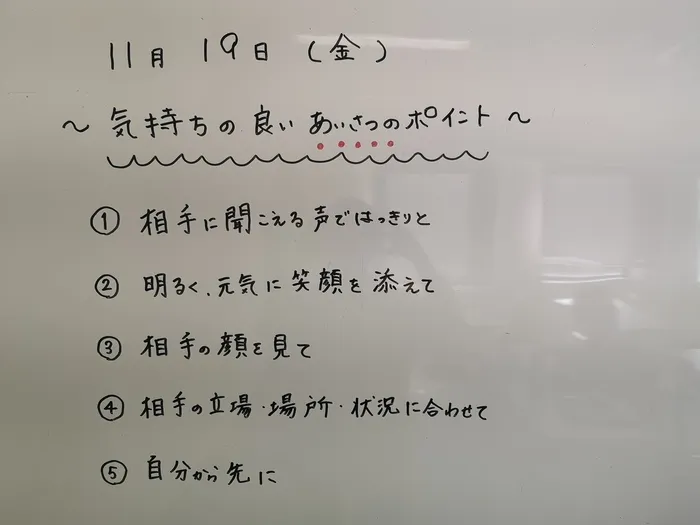 11月 19日 (金)
～ 気持ちの良い あいさつのポイント ～
① 相手に聞こえる声ではっきりと
② 明るく、元気に笑顔を添えて
③ 相手の顔を見て
④ 相手の立場・場所・状況に合わせて
⑤ 自分から先に